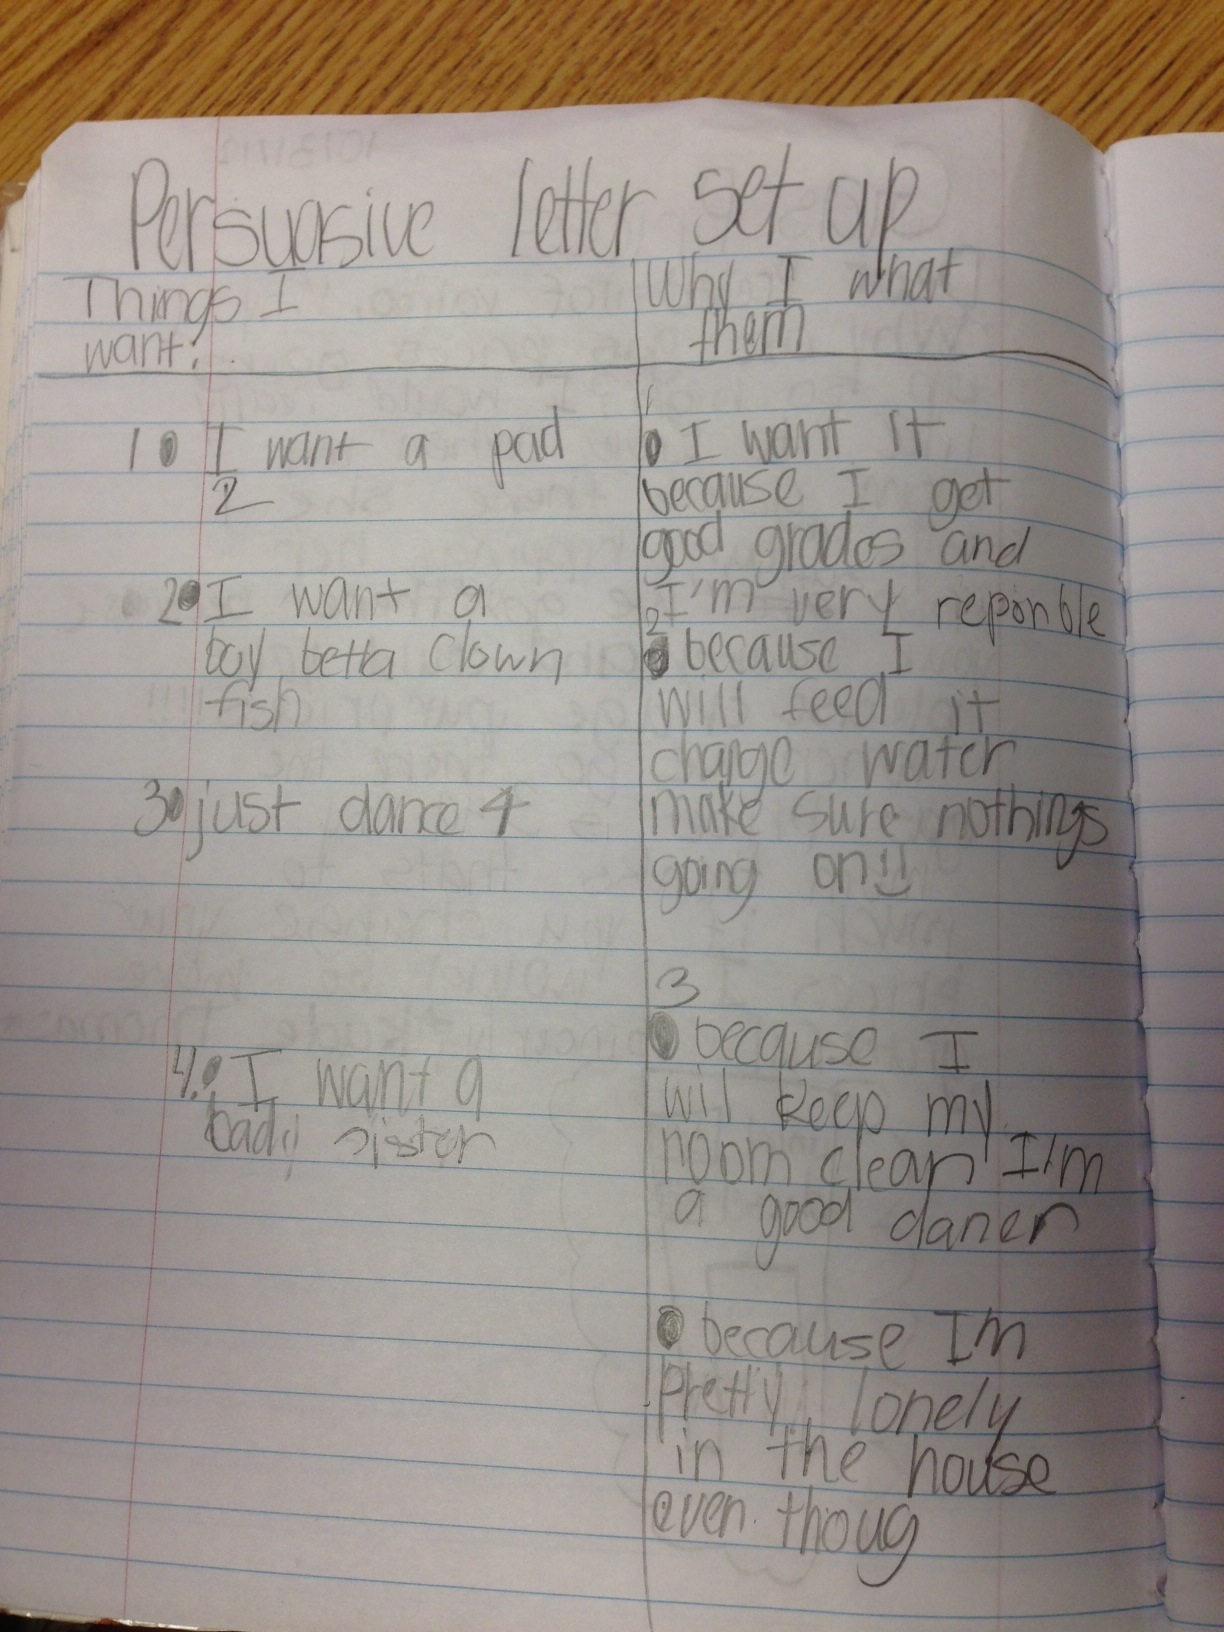 Persuasive letter set up
Things I
want:
1• I want a pad
2
2• I want a
boy betta clown
fish
3• just dance 4
4.• I want a
bady sister
Why I what
them
1
• I want it
because I get
good grades and
I'm very reponble
2
• because I
will feed it
change water
make sure nothings
going on!!
3
• because I
will keep my
room clean I'm
a good daner
• because Im
pretty lonely
in the house
even thoug